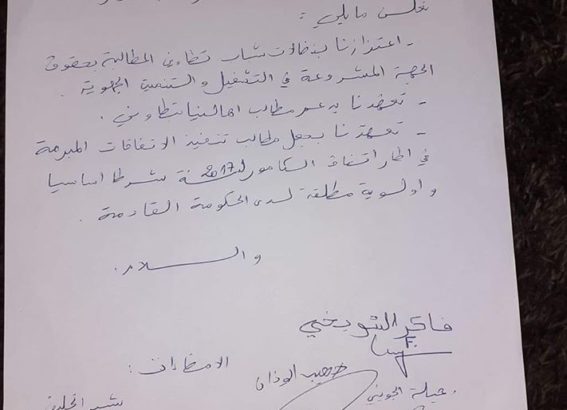 نعلن مايلي :
- اعتزازنا بنضالات شباب تطاوين المطالبة بحقوق
الجهة المشروعة في التشغيل والتنمية الجهوية .
- تعهدنا بدعم مطالب اهالينا بتطاوين .
- تعهدنا بجعل مطالب تنفيذ الاتفاقات المبرمة
في اطار اتفاق الكامور لسنة 2017 شرطا اساسيا
و اولوية مطلقة لدى الحكومة القادمة .
والسلام.
فاكر الشويخي
الامضاءات :
حبيب الوذان
جميلة الجويني
بشير الخليفي